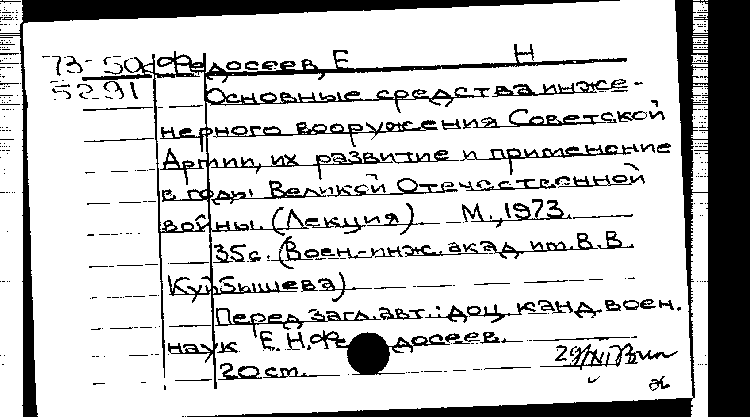 73-50 Федосеев, Е Н
5291 Основные средства инже-
нерного вооружения Советской
Армии, их развитие и применение
в годы Великой Отечественной
войны. (Лекция). М., 1973.
35с. (Воен.-инж. акад им. В.В.
Куйбышева).
Перед загл. авт.: доц. канд. воен.
наук Е.Н. Федосеев.
20 cm.